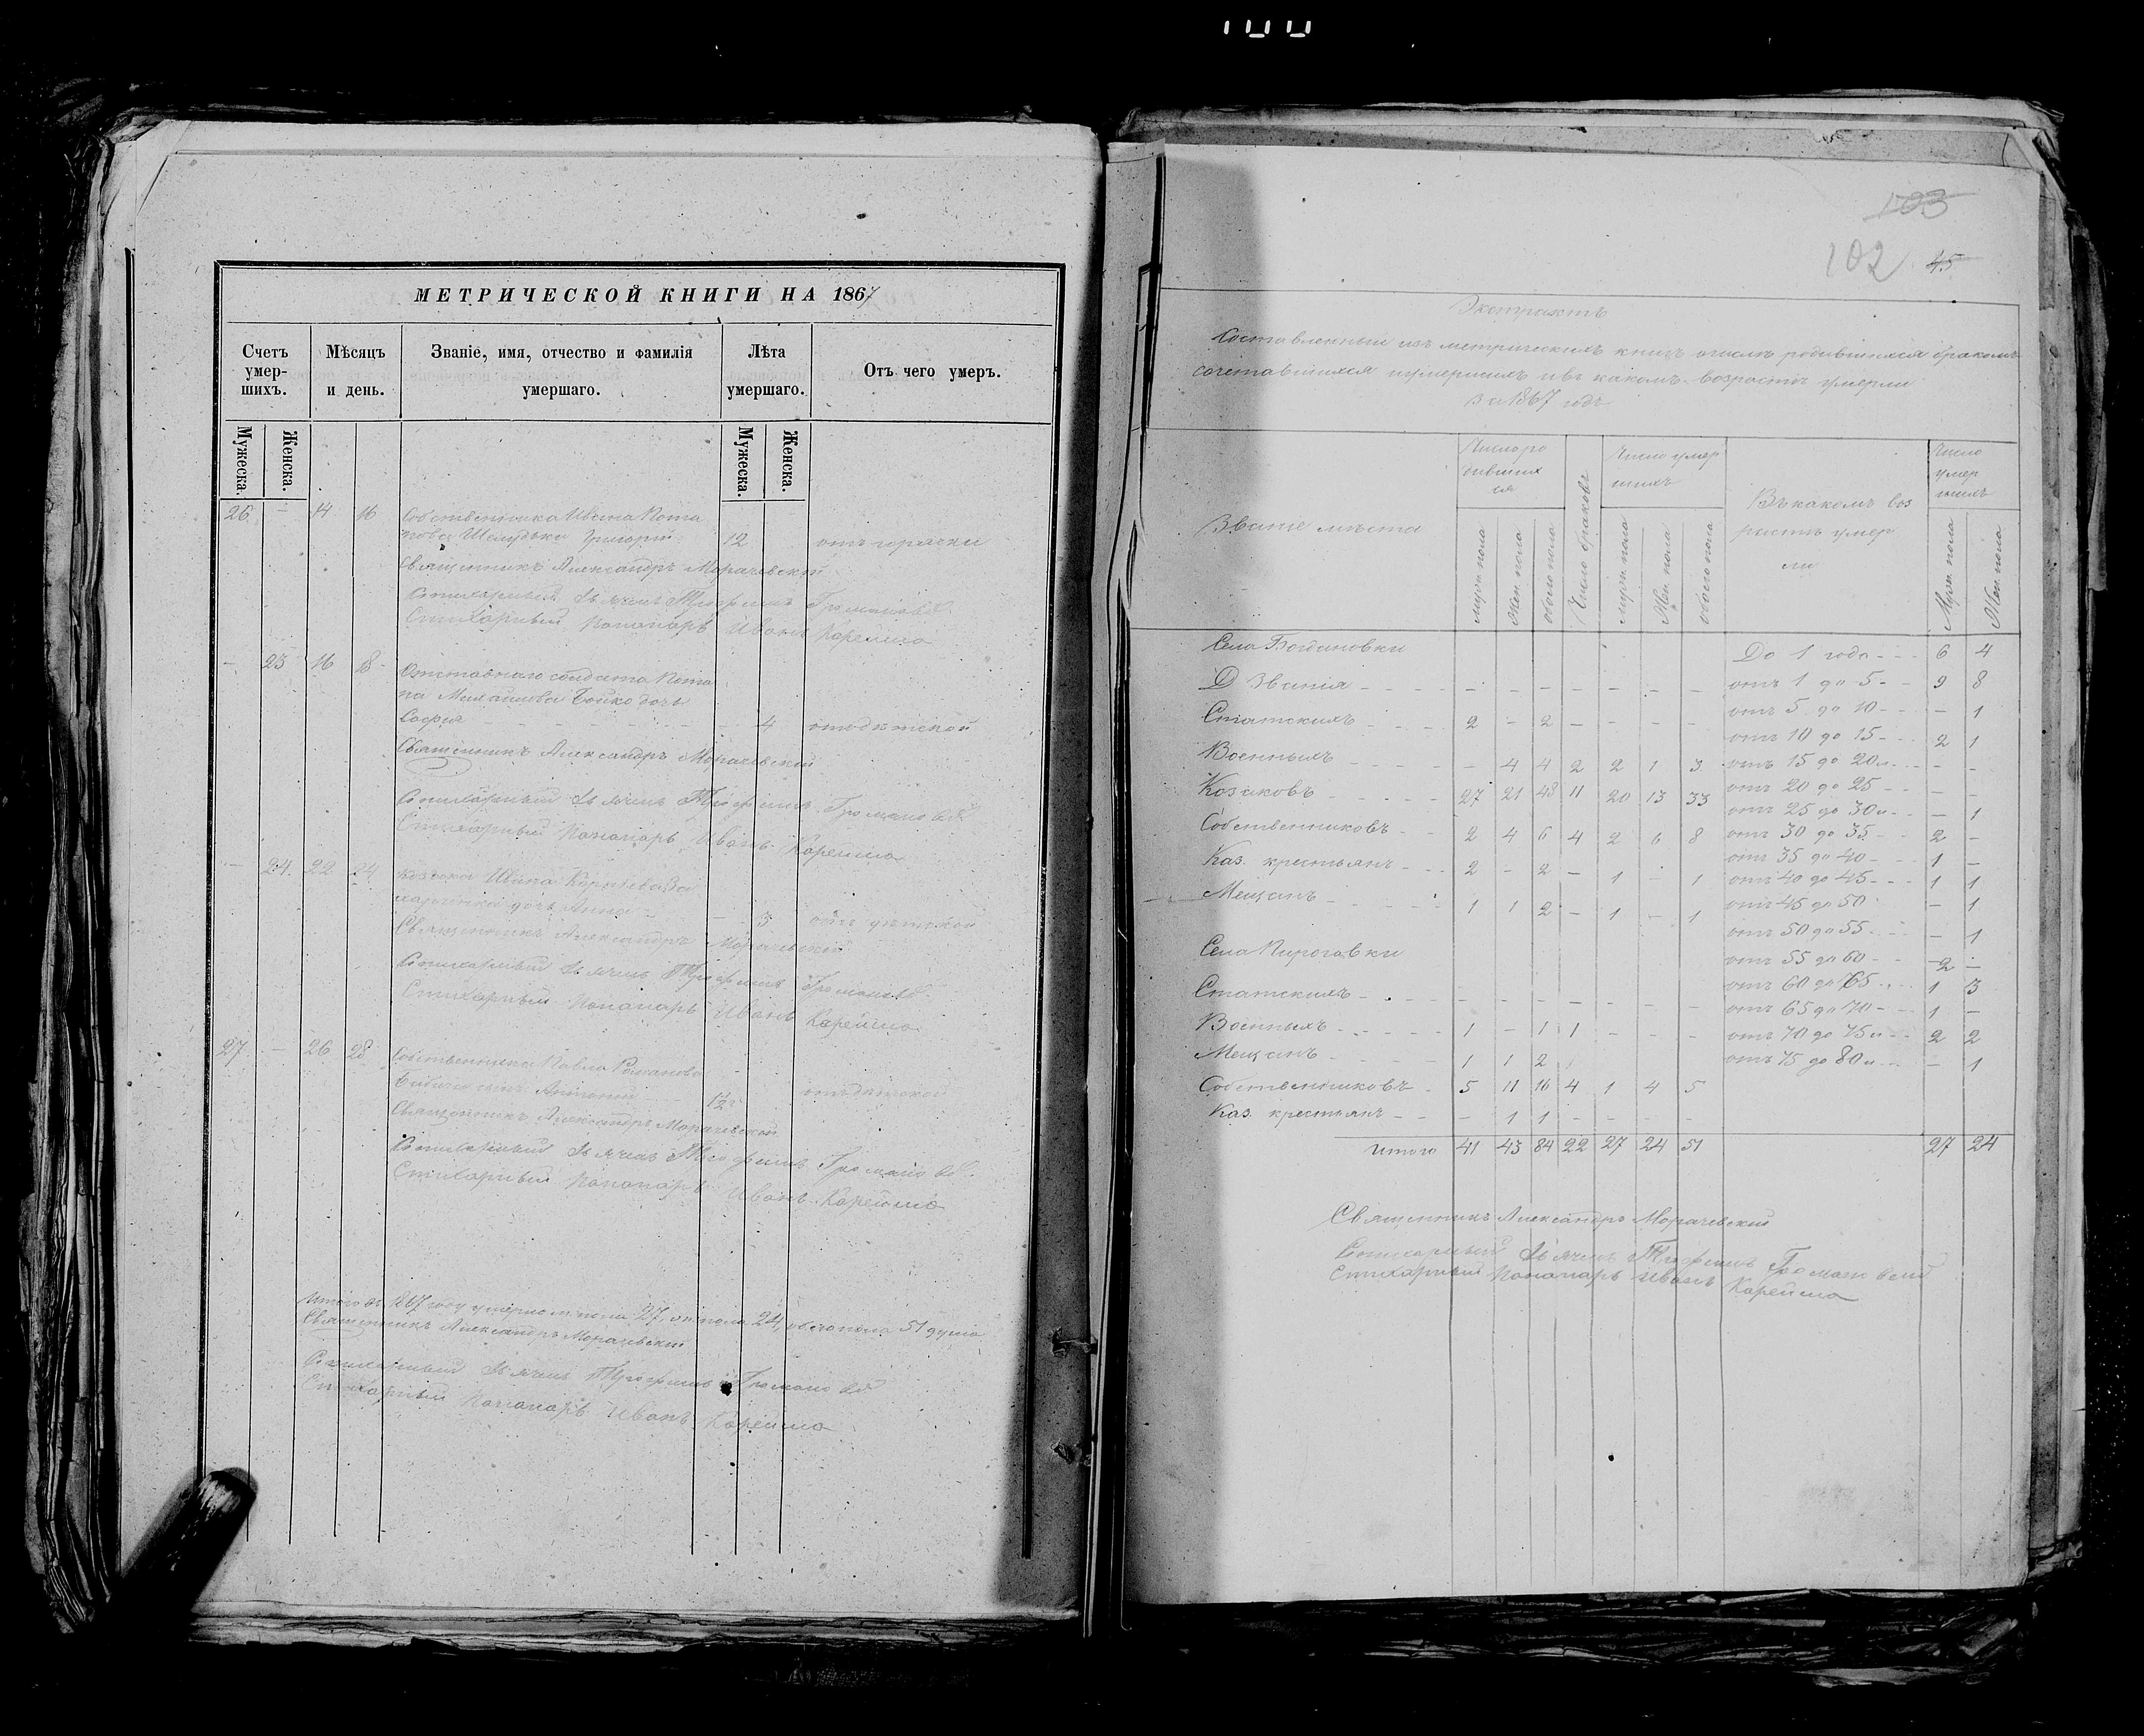 МЕТРИЧЕСКОЙ КНИГИ НА 1867
Счетъ умер-шихъ.
Мѣсяцъ и день.
Званіе, имя, отчество и фамилія умершаго.
Лѣта умершаго.
Отъ чего умеръ.
Мужеска. Женска. Мужеска. Женска.
26 – 14 16 Собственника Ивана Пота
пова Григорій 12 отъ горячки
Священникъ Александръ Морачевскій
Стихарный Дьячекъ
Стихарный Пономарь Иванъ Карейша
– 23 16 18 Отставнаго солдата Пота
па Михайлова Бойко дочь
Софія 4 отъ дѣтской
Священникъ Александръ Морачевскій
Стихарный Дьячекъ
Стихарный Пономарь Иванъ Карейша
– 24 22 24 Козака Ивана
дочь Анна 3 отъ дѣтской
Священникъ Александръ Морачевскій
Стихарный Дьячекъ
Стихарный Пономарь Иванъ Карейша
27 – 26 28 Собственника Павла Романова
сынъ Антоній 1½ отъ дѣтской
Священникъ Александръ Морачевскій
Стихарный Дьячекъ
Стихарный Пономарь Иванъ Карейша
Итого въ 1867 году умерло м. пола 27, ж. пола 24, обоего пола 51 душа
Священникъ Александръ Морачевскій
Стихарный Дьячекъ
Стихарный Пономарь Иванъ Карейша
103
102 45
Экстрактъ
Составленный изъ метрическихъ книгъ о числѣ родившихся бракомъ
сочетавшихся и умершихъ и въ какомъ возрастѣ умерли
за 1867 годъ
Званіе мѣста
Число ро
дивших
ся
Число браковъ
Число умер
шихъ
Въ какомъ воз
растѣ умер
ли
Число
умер
шихъ
Муж. пола Жен. пола Обоего пола Муж. пола Жен. пола Обоего пола Муж. пола Жен. пола
Села Богдановки До 1 года 6 4
Д. Званія – – – – – – – отъ 1 до 5 9 8
отъ 5 до 10 – 1
Статскихъ 2 – 2 – – – –
отъ 10 до 15 2 1
Военныхъ – 4 4 2 2 1 3 отъ 15 до 20 – –
отъ 20 до 25 – –
Козаковъ 27 21 48 11 20 13 33
отъ 25 до 30 – 1
Собственниковъ 2 4 6 4 2 6 8 отъ 30 до 35 2 –
отъ 35 до 40 1 –
Каз. крестьянъ 2 – 2 – 1 – 1 отъ 40 до 45 1 1
Мещанъ 1 1 2 – 1 – 1 отъ 45 до 50 – 1
отъ 50 до 55 – 1
Села Пироговки отъ 55 до 60 2 –
отъ 60 до 65 1 3
Статскихъ – – – – – – –
отъ 65 до 70 1 –
Военныхъ 1 – 1 1 – – – отъ 70 до 75 2 2
Мещанъ 1 1 2 отъ 75 до 80 – 1
Собственниковъ 5 11 16 4 1 4 5
Каз. крестьянъ – 1 1 – – – –
Итого 41 43 84 22 27 24 51 27 24
Священникъ Александръ Морачевскій
Стихарный Дьячекъ
Стихарный Пономарь Иванъ Карейша